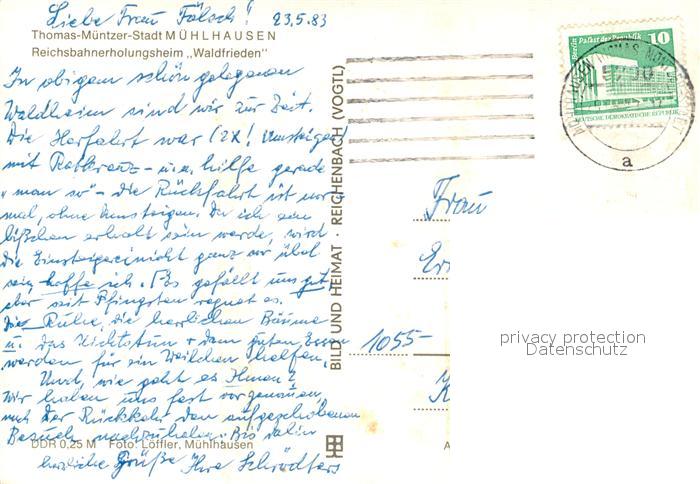 Liebe Frau Fölsch! 23.5.83
Thomas-Müntzer-Stadt MÜHLHAUSEN
Reichsbahnerholungsheim „Waldfrieden"
In obigem schön gelegenen
Waldheim sind wir zur Zeit.
Die Herfahrt war (2x! Umsteigen
mit hilfe gerade
"man so" - die Rückfahrt ist nor
mal, ohne Umsteigen. Da ich ein
bißchen erholt sein werde, wird
die Einsteigerei nicht ganz so übel
sein, hoffe ich. Es gefällt uns gut,
aber seit Pfingsten regnet es.
Die Ruhe, die herrlichen Bäume
u. das Nichtstun + dem guten Essen
werden für ein Weilchen helfen.
Und, wie geht es Ihnen?
Wir haben uns fest vorgenommen,
nach der Rückkehr den aufgeschobenen
Besuch nachzuholen. Bis dahin
herzliche Grüße Ihre Schrödters
DDR 0,25 M Foto: Löffler, Mühlhausen
BILD UND HEIMAT · REICHENBACH (VOGTL)
Berlin Palast der Republik 10
DEUTSCHE DEMOKRATISCHE REPUBLIK
a
Frau
1055-
privacy protection
Datenschutz
A